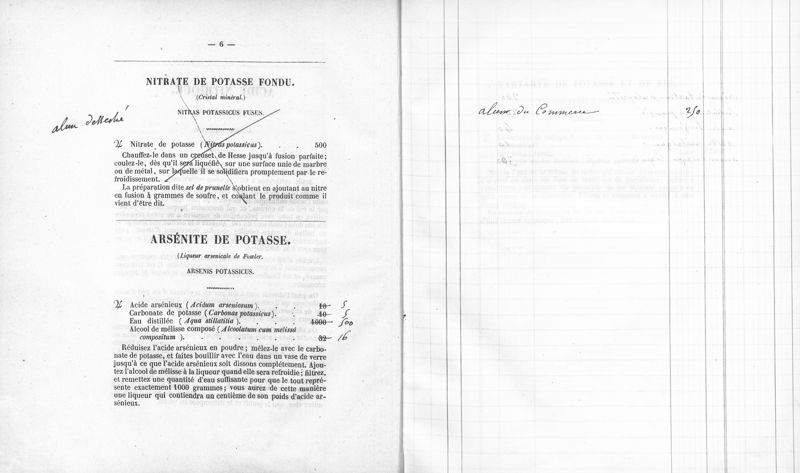 — 6 —
NITRATE DE POTASSE FONDU.
(Cristal minéral.)
NITRAS POTASSICUS FUSUS.
alun desséché
♃ Nitrate de potasse (Nitras potassicus). . . 500
Chauffez-le dans un creuset de Hesse jusqu'à fusion parfaite;
coulez-le, dès qu'il sera liquéfié, sur une surface unie de marbre
ou de métal, sur laquelle il se solidifiera promptement par le re-
froidissement.
La préparation dite sel de prunelle s'obtient en ajoutant au nitre
en fusion 4 grammes de soufre, et coulant le produit comme il
vient d'être dit.
ARSÉNITE DE POTASSE.
(Liqueur arsenicale de Fowler.
ARSENIS POTASSICUS.
♃ Acide arsénieux (Acidum arseniosum). . . 10 5
Carbonate de potasse (Carbonas potassicus). . 10 5
Eau distillée (Aqua stillatitia). . . . 1000 500
Alcool de mélisse composé (Alcoolatum cum melissâ
compositum). . . . . . . 32 16
Réduisez l'acide arsénieux en poudre; mêlez-le avec le carbo-
nate de potasse, et faites bouillir avec l'eau dans un vase de verre
jusqu'à ce que l'acide arsénieux soit dissous complétement. Ajou-
tez l'alcool de mélisse à la liqueur quand elle sera refroidie; filtrez,
et remettez une quantité d'eau suffisante pour que le tout repré-
sente exactement 1000 grammes; vous aurez de cette manière
une liqueur qui contiendra un centième de son poids d'acide ar-
sénieux.
alun du Commerce 250